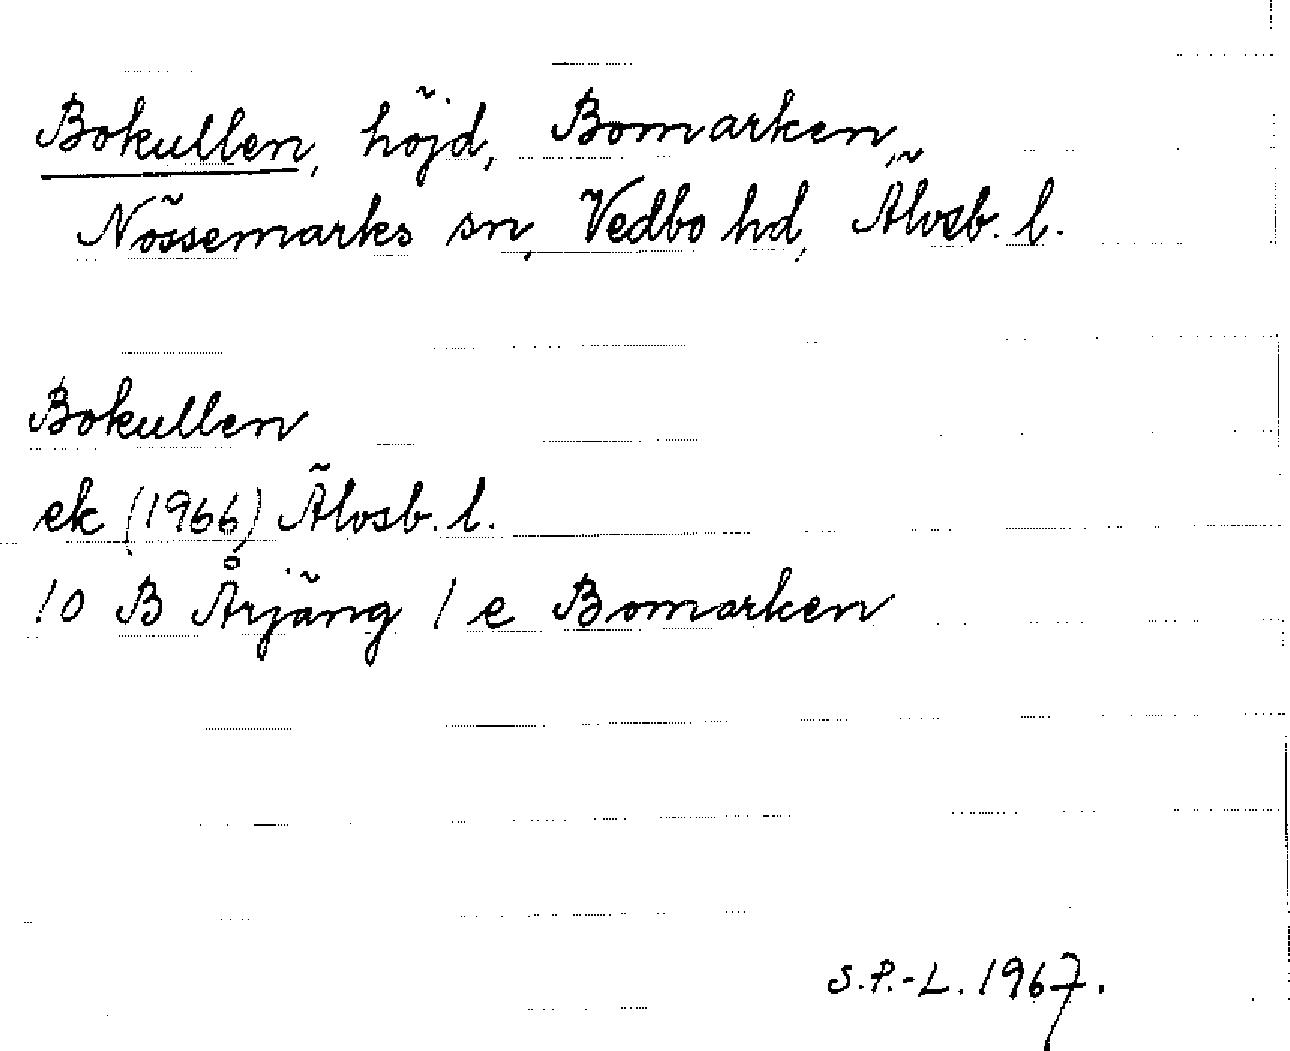 Bokullen, höjd, Bomarken,
Nössemarks sn, Vedbo hd, Älvsb. l.
Bokullen
ek (1966) Älvsb. l.
10 B Årjäng 1 e Bomarken
S.P.-L. 1967.